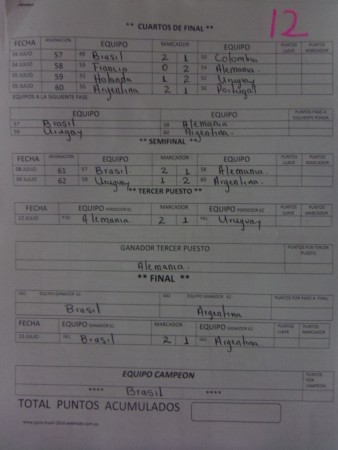 12
** CUARTOS DE FINAL **
FECHA ASIGNACION EQUIPO MARCADOR EQUIPO PUNTOS LLAVE PUNTOS MARCADOR
04 JULIO 57 49 Brasil 2 1 50 Colombia
04 JULIO 58 53 0 2 54 Alemania
05 JULIO 59 51 Holanda 1 2 52 Uruguay
05 JULIO 60 55 Argentina 2 1 56 Portugal
EQUIPOS A LA SIGUIENTE FASE
EQUIPO EQUIPO PUNTOS PASO A SIGUIENTE RONDA
57 Brasil 58 Alemania
59 Uruguay 60 Argentina
** SEMIFINAL **
FECHA ASIGNACION EQUIPO MARCADOR EQUIPO PUNTOS LLAVE PUNTOS MARCADOR
08 JULIO 61 57 Brasil 2 1 58 Alemania
09 JULIO 62 59 Uruguay 1 2 60 Argentina
** TERCER PUESTO **
FECHA EQUIPO MARCADOR EQUIPO PUNTOS LLAVE PUNTOS MARCADOR
12 JULIO P61 Alemania 2 1 P62 Uruguay
GANADOR TERCER PUESTO PUNTOS POR TERCER PUESTO
Alemania
** FINAL **
EQUIPO GANADOR 61 EQUIPO GANADOR 62 PUNTOS POR PASO A FINAL
Brasil Argentina
FECHA EQUIPO GANADOR 61 MARCADOR EQUIPO GANADOR 62 PUNTOS LLAVE PUNTOS MARCADOR
13 JULIO Brasil 2 1 Argentina
EQUIPO CAMPEON PUNTOS POR CAMPEON
**** Brasil ****
TOTAL PUNTOS ACUMULADOS